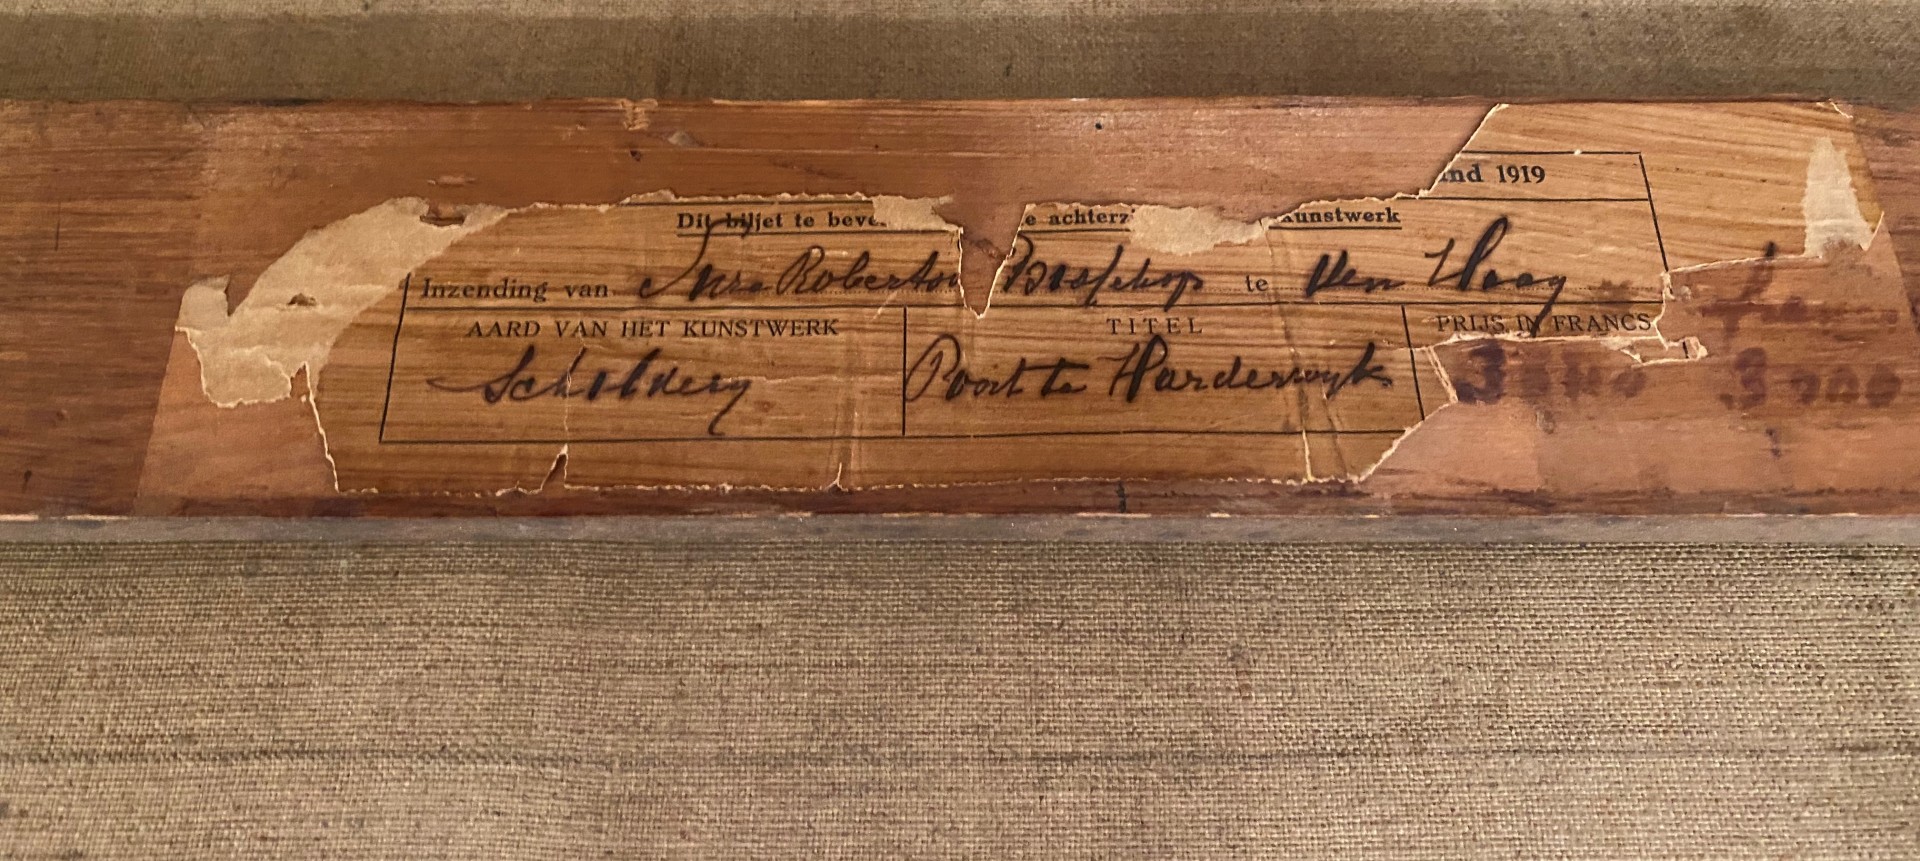 nd 1919
Dit biljet te beve e achterzi kunstwerk
Inzending van Mrs Robertson Bosschop te den Haag
AARD VAN HET KUNSTWERK TITEL PRIJS IN FRANCS
Schildery Poort te Harderwyk 3000 3000